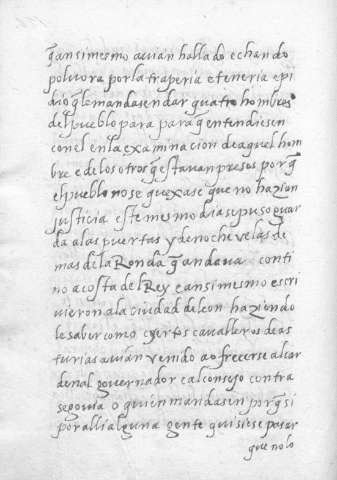 q̃ ansimesmo avian hallado echando
polvora por la traperia e teneria e pi
dio q̃ le mandasen dar quatro hombres
del pueblo para para q̃ entendiesen
con el en la examinacion de aquel hom
bre e de los otros q̃ estavan presos porq̃
el pueblo no se quexase que no hazian
justicia este mesmo dia se puso guar
da a las puertas y de noche velas de
mas de la Ronda q̃ andava conti
no a costa del Rey e ansimesmo escri
vieron a la ciudad de leon haziendo
le saber como ciertos cavalleros de as
turias avian venido a ofrecerse al car
denal governador e al consejo contra
segovia o quien mandasen porq̃ si
por alli alguna gente quisiese pasar
que no lo